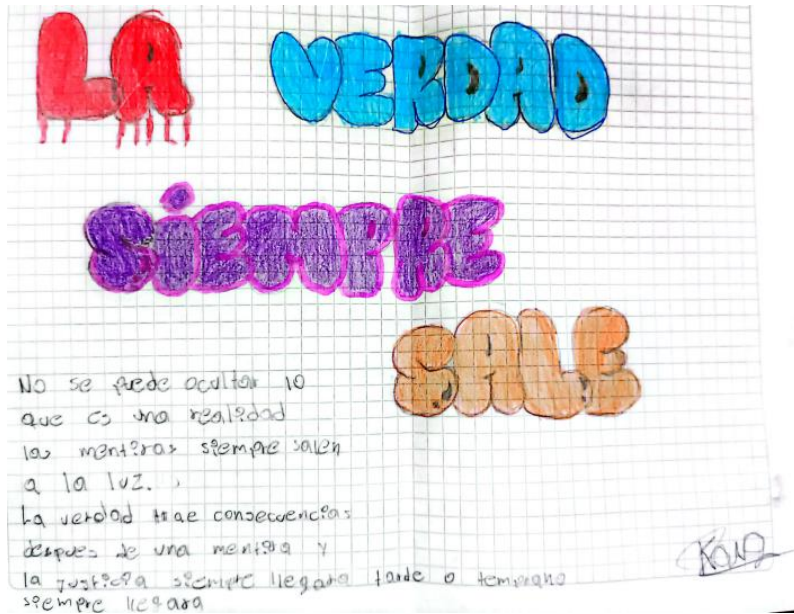 LA VERDAD
SiEMPRE
SALE
No se puede ocultar lo
que es una realidad
las mentiras siempre salen
a la luz.
La verdad trae consecuencias
despues de una mentira y
la justicia siempre llegara tarde o temprano
siempre llegara